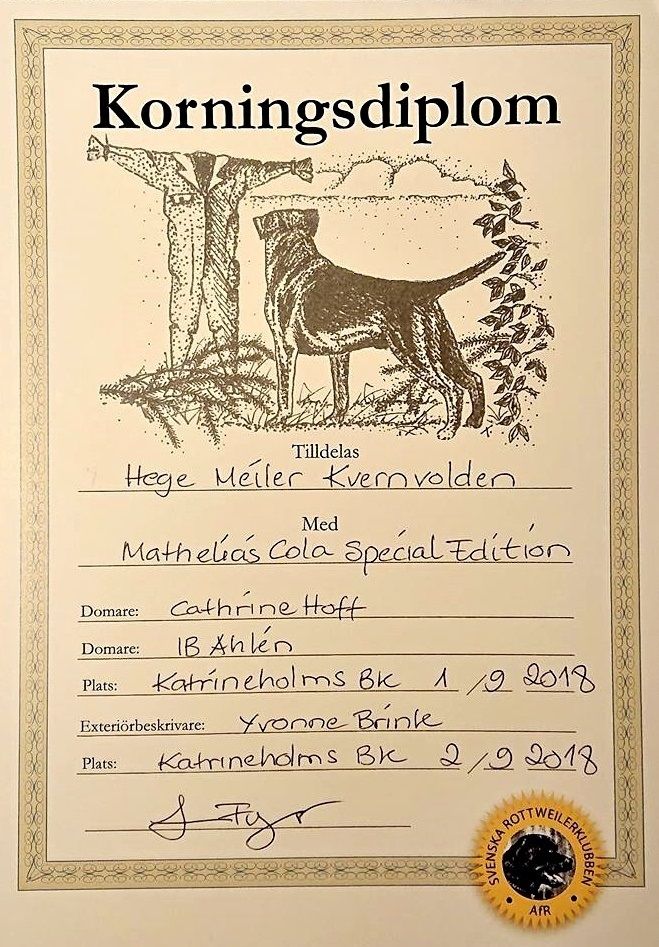 Korningsdiplom
Tilldelas
Hege Meiler Kvernvolden
Med
Matheliás Cola Special Edition
Domare: Cathrine Hoff
Domare: IB Ahlén
Plats: Katrineholms Bk 1 /9 2018
Exteriörbeskrivare: Yvonne Brink
Plats: Katrineholms Bk 2 /9 2018
SVENSKA ROTTWEILERKLUBBEN
• AfR •